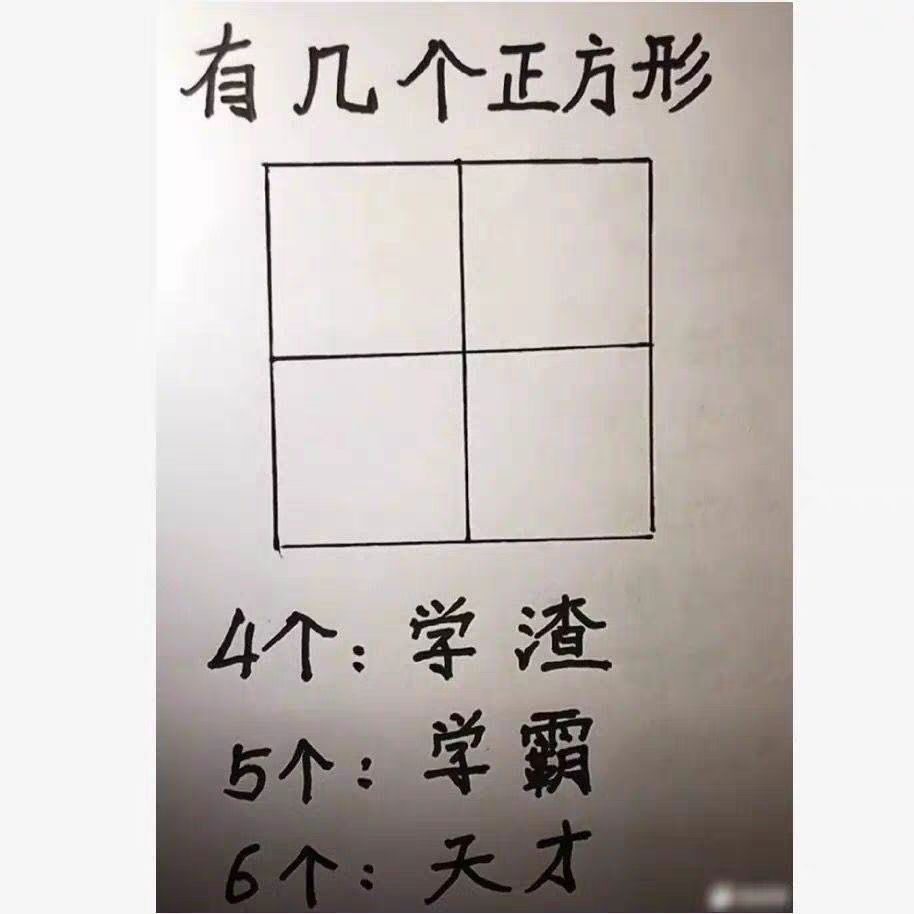 有几个正方形
4个:学渣
5个:学霸
6个:天才